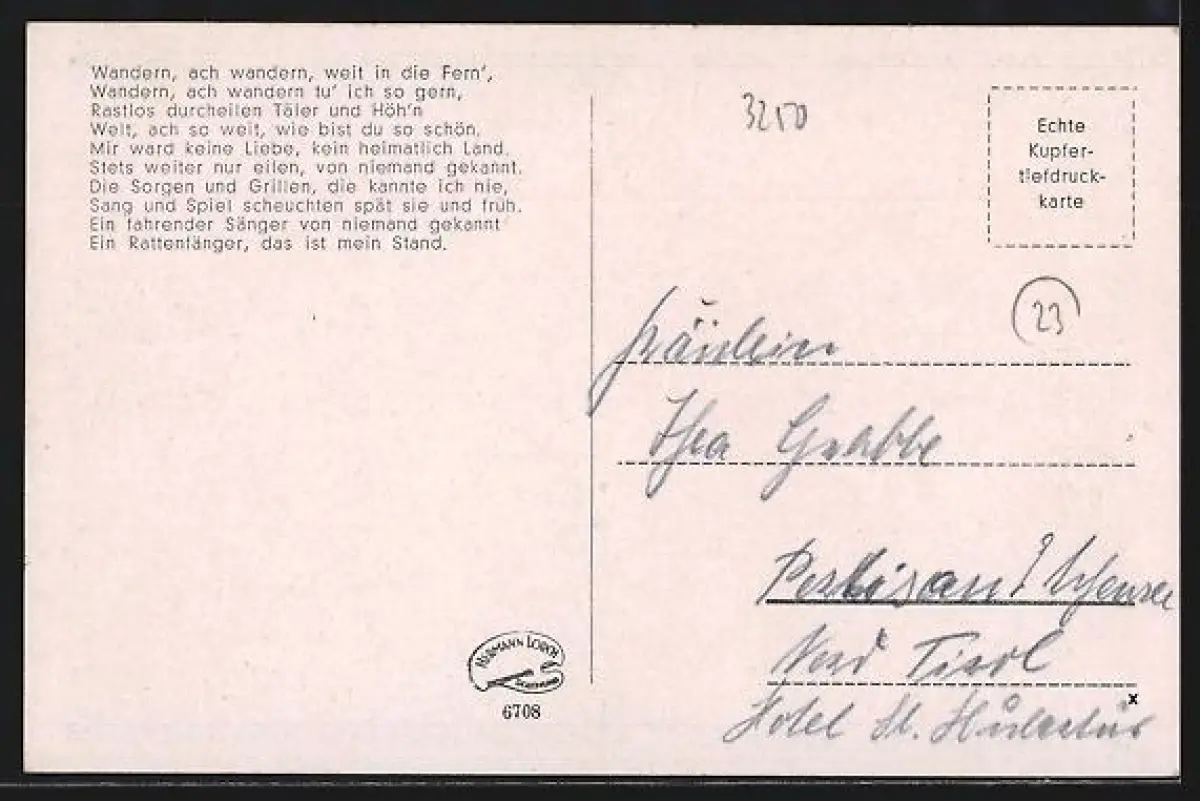 Wandern, ach wandern, weit in die Fern',
Wandern, ach wandern tu' ich so gern,
Rastlos durcheilen Täler und Höh'n
Welt, ach so weit, wie bist du so schön.
Mir ward keine Liebe, kein heimatlich Land.
Stets weiter nur eilen, von niemand gekannt.
Die Sorgen und Grillen, die kannte ich nie,
Sang und Spiel scheuchten spät sie und früh.
Ein fahrender Sänger von niemand gekannt
Ein Rattenfänger, das ist mein Stand.
HERMANN LORCH
6708
3250
Echte
Kupfer-
tiefdruck-
karte
23
Fräulein
Thea Grabbe
Pertisau Achensee
Nord Tirol
x
Hotel St. Hubertus